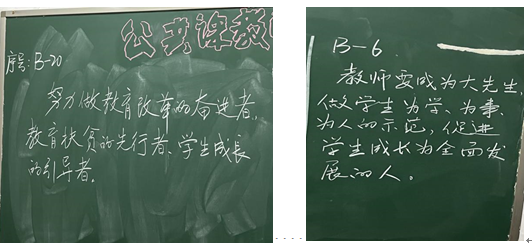 公共课教
序号:B-20
努力做教育改革的奋进者,
教育扶贫的先行者、学生成长
的引导者。
B-6.
教师要成为大先生,
做学生为学、为事、
为人的示范,促进
学生成长为全面发
展的人。